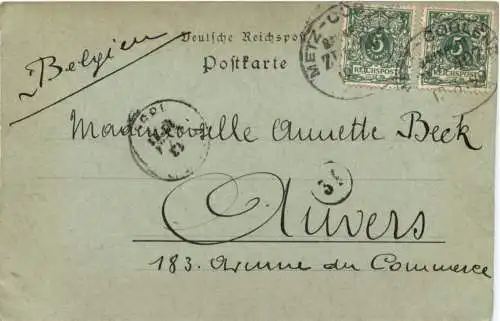 Belgien
Deutsche Reichspost
Postkarte
METZ-COB
5 5
REICHSPOST REICHSPOST
Mademoiselle Annette Beck
Anvers
183. Avenue du Commerce